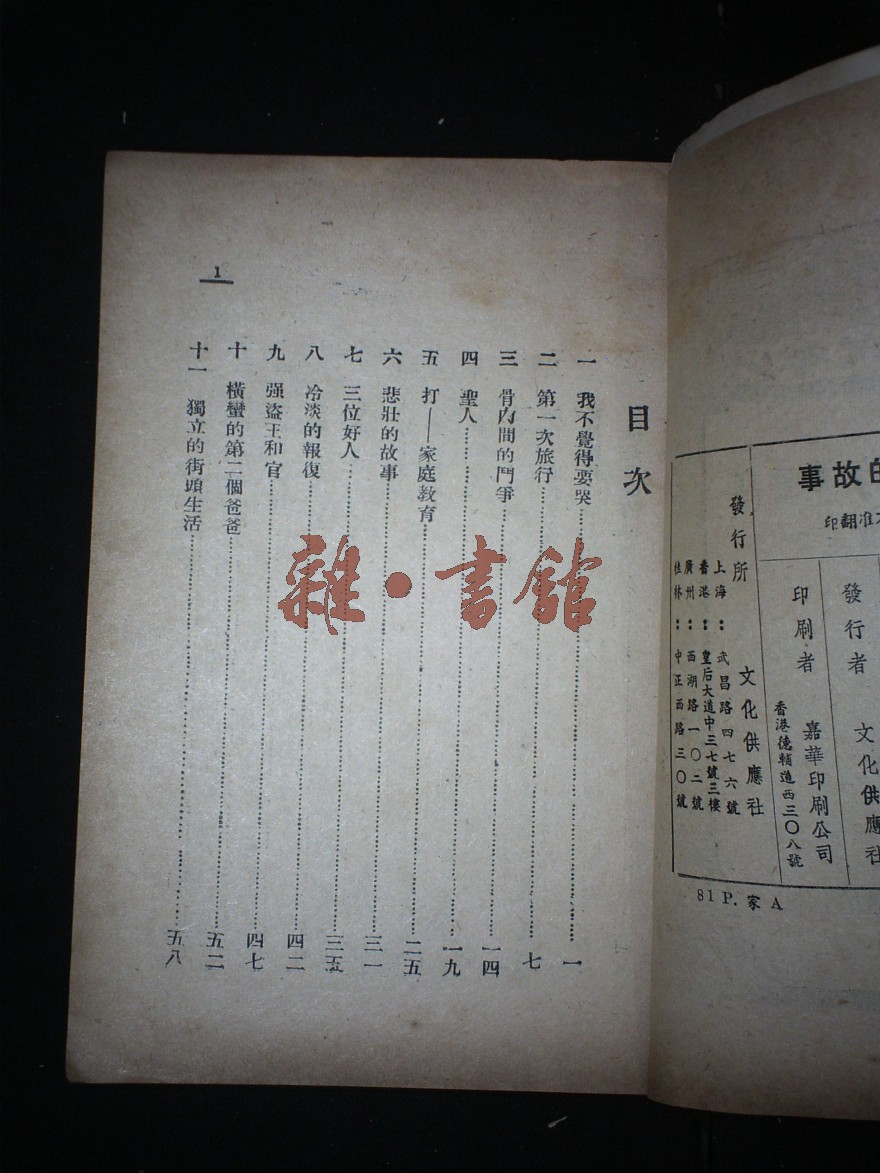 的故事
不准翻印
發行者 文化供應社
印刷者 嘉華印刷公司
香港德輔道西三〇八號
發行所 文化供應社
上海：武昌路四七六號
香港：皇后大道中三七號三樓
廣州：西湖路一〇二號
桂林：中正西路三〇號
81 P. 家 A
目次
一 我不覺得要哭 一
二 第一次旅行 七
三 骨肉間的鬥爭 一四
四 聖人 一九
五 打——家庭教育 二五
六 悲壯的故事 三一
七 三位好人 三五
八 冷淡的報復 四二
九 强盜王和官 四七
十 橫蠻的第二個爸爸 五二
十一 獨立的街頭生活 五八
1
雜·書館